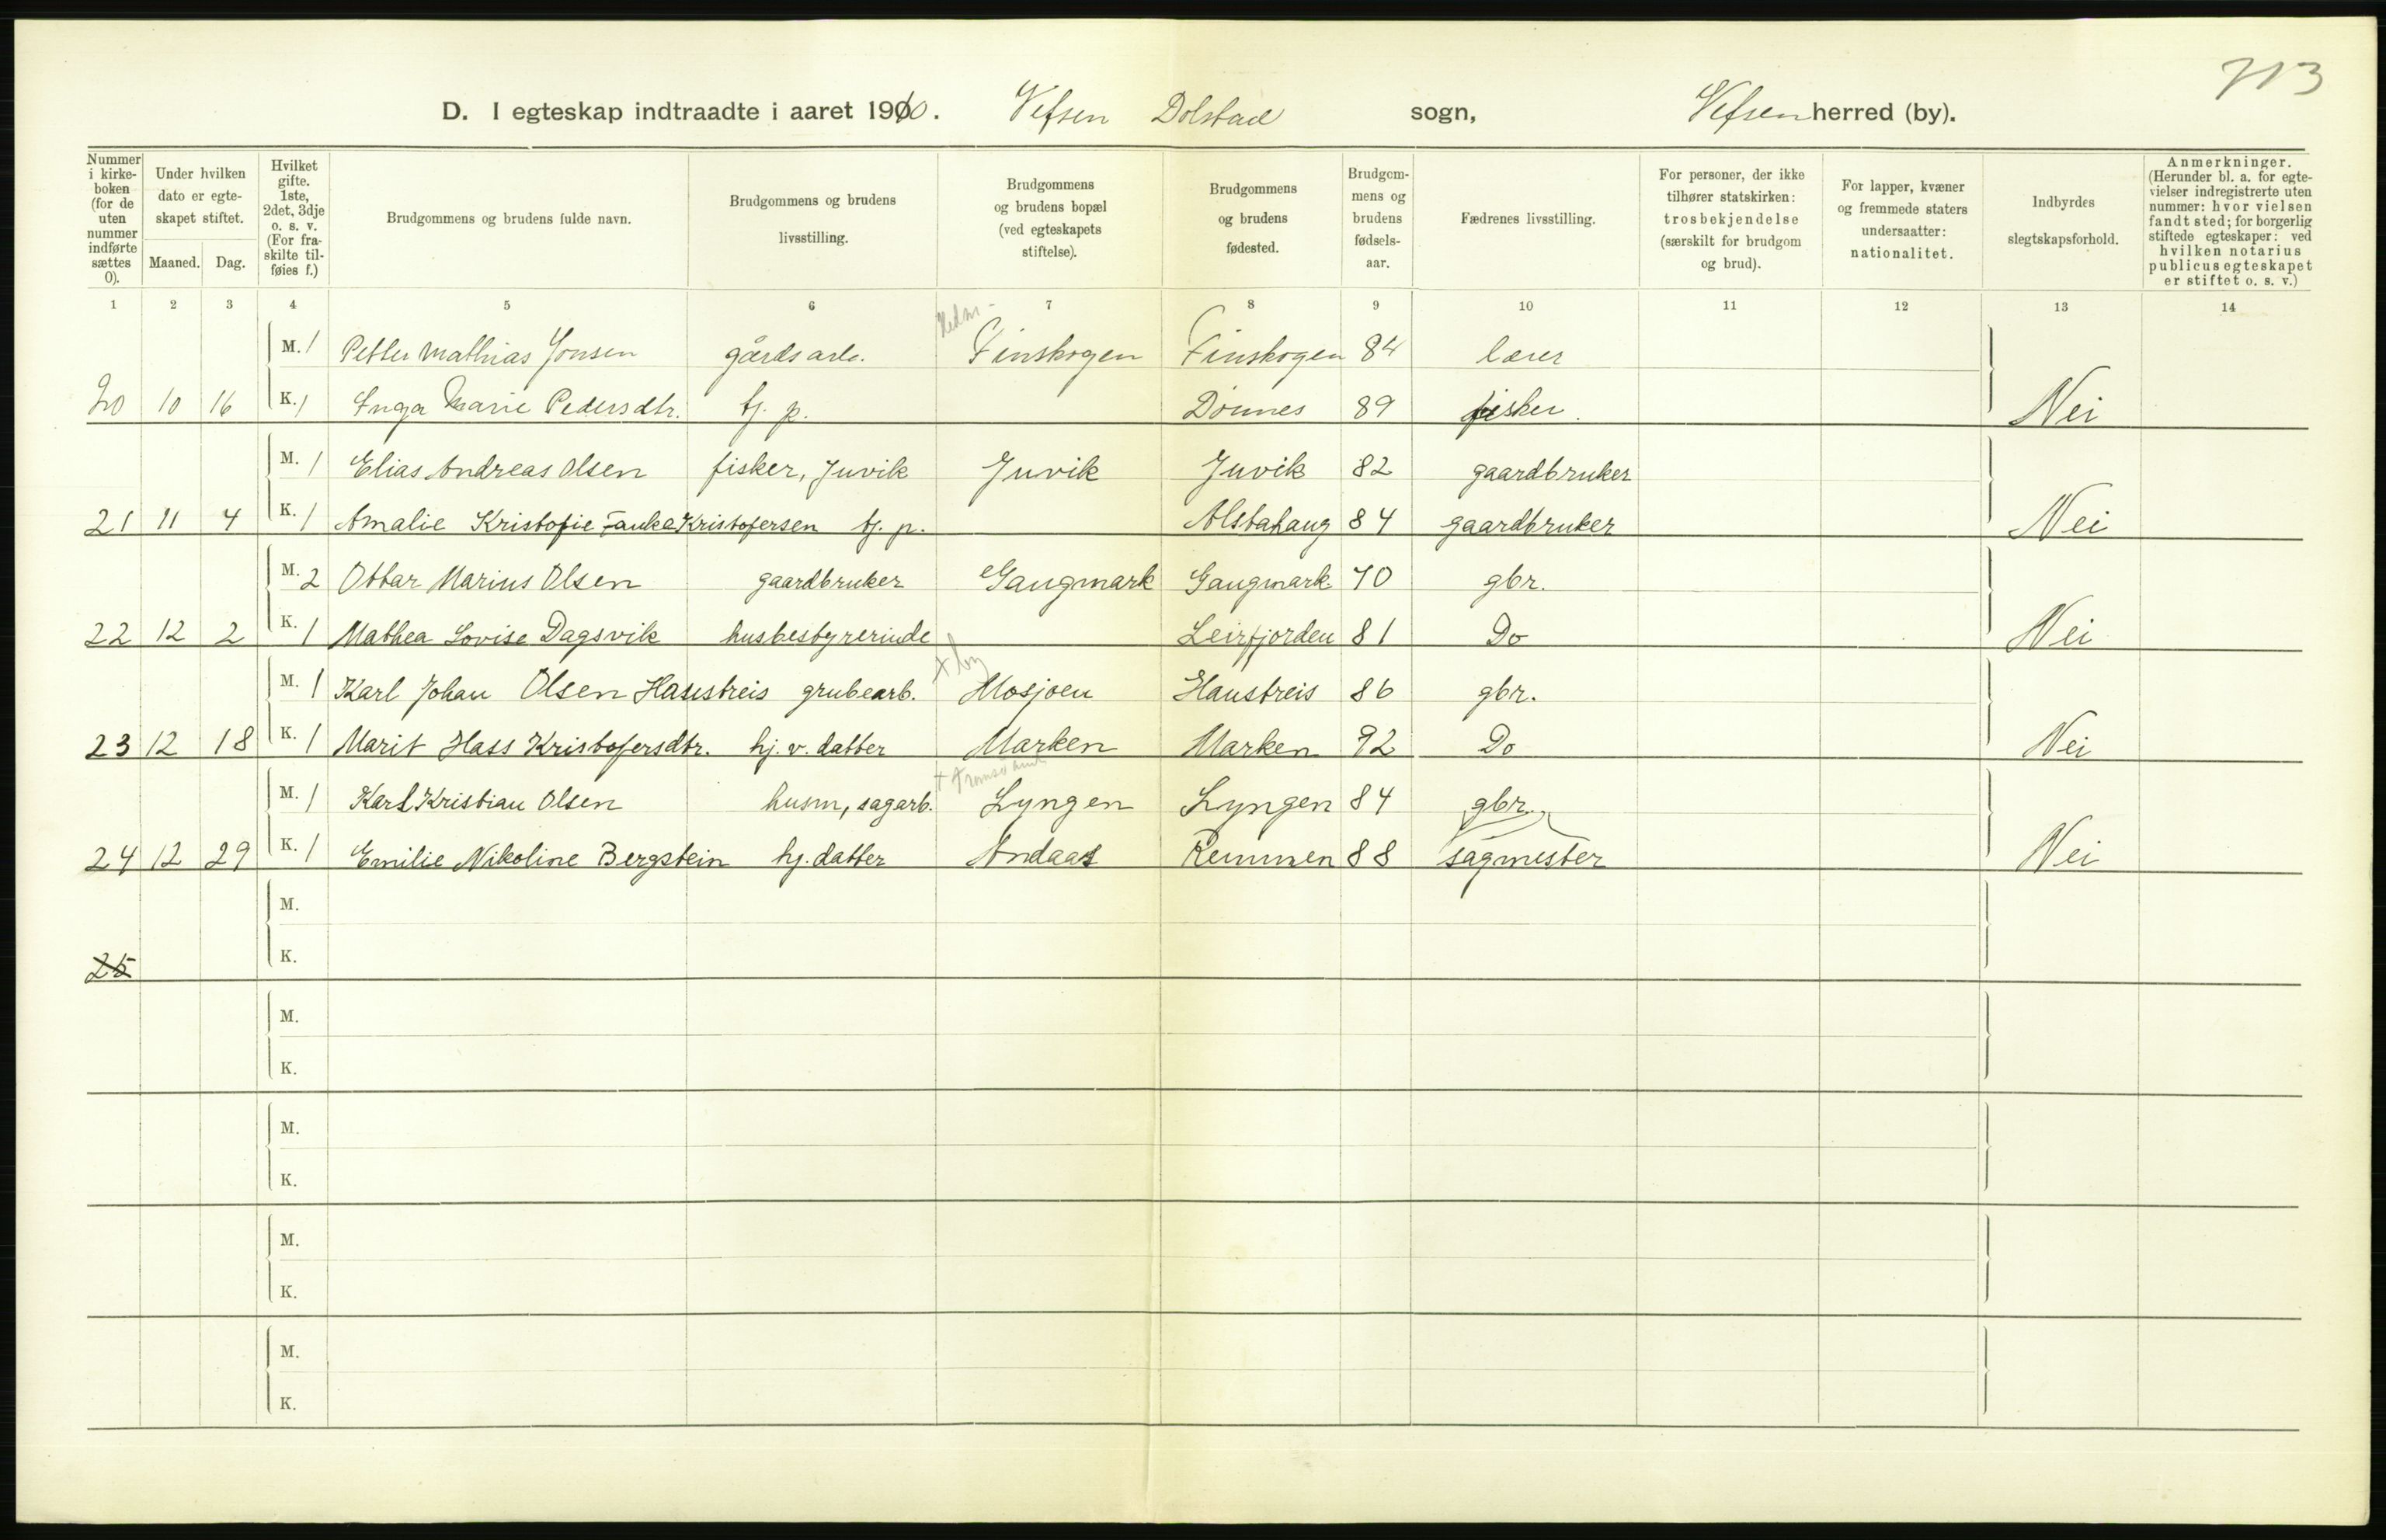 713
D. I egteskap indtraadte i aaret 1910. Vefsen Dolstad sogn, Vefsen herred (by).
Nummer i kirke-boken (for de uten nummer indførte sættes 0).
Under hvilken dato er egte-skapet stiftet.
Maaned. Dag.
Hvilket gifte. 1ste, 2det, 3dje o. s. v. (For fra-skilte til-føies f.)
Brudgommens og brudens fulde navn.
Brudgommens og brudens livsstilling.
Brudgommens og brudens bopæl (ved egteskapets stiftelse).
Brudgommens og brudens fødested.
Brudgom-mens og brudens fødsels-aar.
Fædrenes livsstilling.
For personer, der ikke tilhører statskirken: trosbekjendelse (særskilt for brudgom og brud).
For lapper, kvæner og fremmede staters undersaatter: nationalitet.
Indbyrdes slegtskapsforhold.
Anmerkninger. (Herunder bl. a. for egte-vielser indregistrerte uten nummer: hvor vielsen fandt sted; for borgerlig stiftede egteskaper: ved hvilken notarius publicus egteskapet er stiftet o. s. v.)
1 2 3 4 5 6 7 8 9 10 11 12 13 14
M. 1 Petter Mathias Jonsen gårdsarb. Finskogen Finskogen 84 lærer
20 10 16 K. 1 Inga Marie Pedersdtr. tj. p. Dønnes 89 fisker. Nei
M. 1 Elias Andreas Olsen fisker, Juvik Juvik Juvik 82 gaardbruker
21 11 4 K. 1 Amalie Kristofie Kristofersen tj. p. Alstahaug 84 gaardbruker Nei
M. 2 Ottar Marius Olsen gaardbruker Gaugmark Gaugmark 70 gbr.
22 12 2 K. 1 Mathea Lovise Dagsvik husbestyrerinde Leirfjorden 81 Do Nei
+ by
M. 1 Karl Johan Olsen Haustreis grubearb. Mosjøen Haustreis 86 gbr.
23 12 18 K. 1 Marit Hass Kristofersdtr. hj. v. datter Marken Marken 92 Do Nei
+ Tromsø amt
M. 1 Karl Kristian Olsen husm, sagarb. Lyngen Lyngen 84 gbr.
24 12 29 K. 1 Emilie Nikoline Bergstein hj. datter Andaas Remmen 88 sagmester Nei
M.
25 K.
M.
K.
M.
K.
M.
K.
M.
K.